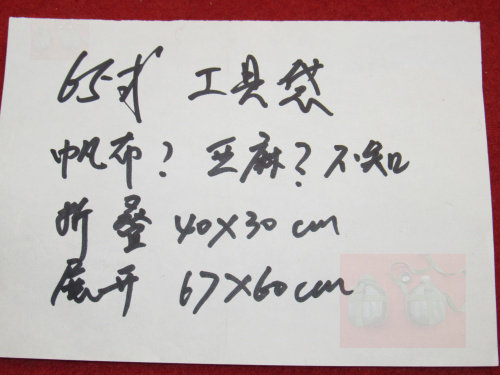 65式 工具袋
帆布? 亚麻? 不知
折叠 40X30cm
展开 67X60cm